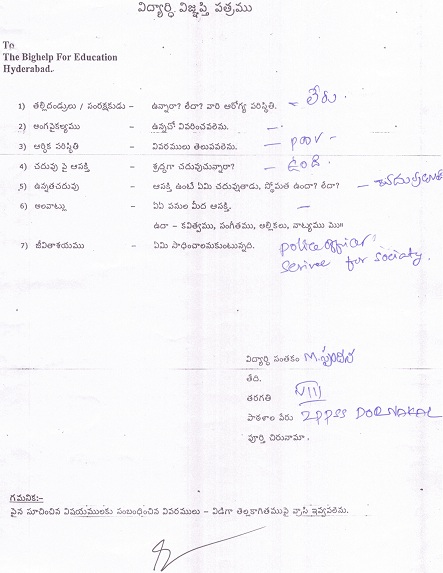 విద్యార్థి విజ్ఞప్తి పత్రము
To
The Bighelp For Education
Hyderabad.
1) తల్లిదండ్రులు / సంరక్షకుడు - ఉన్నారా? లేదా? వారి ఆరోగ్య పరిస్థితి. - లేరు.
2) అంగవైకల్యము - ఉన్నచో వివరించవలెను. -
3) ఆర్థిక పరిస్థితి - వివరములు తెలుపవలెను. - poor -
4) చదువు పై ఆసక్తి - శ్రద్ధగా చదువుచున్నారా? - ఉంది.
5) ఉన్నతచదువు - ఆసక్తి ఉంటే ఏమి చదువుతాడు, స్థోమత ఉందా? లేదా? -
6) అలవాట్లు - ఏఏ పనుల మీద ఆసక్తి. -
ఉదా - కవిత్వము, సంగీతము, అల్లికలు, నాట్యము ము॥
7) జీవితాశయము - ఏమి సాధించాలనుకుంటున్నది. police officer.
serivce for sociaty.
విద్యార్థి సంతకం M.
తేది.
తరగతి VIII
పాఠశాల పేరు ZPPSS DORNAKAL
పూర్తి చిరునామా .
గమనిక:-
పైన సూచించిన విషయములకు సంబంధించిన వివరములు - విడిగా తెల్లకాగితముపై వ్రాసి ఇవ్వవలెను.